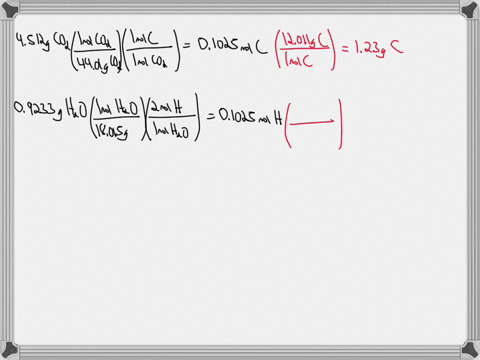 4.512g CO₂ (1mol CO₂ / 44.01g CO₂)(1mol C / 1mol CO₂) = 0.1025 mol C (12.011g C / 1mol C) = 1.23g C
0.9233g H₂O (1mol H₂O / 18.015g)(2mol H / 1mol H₂O) = 0.1025 mol H ( / )